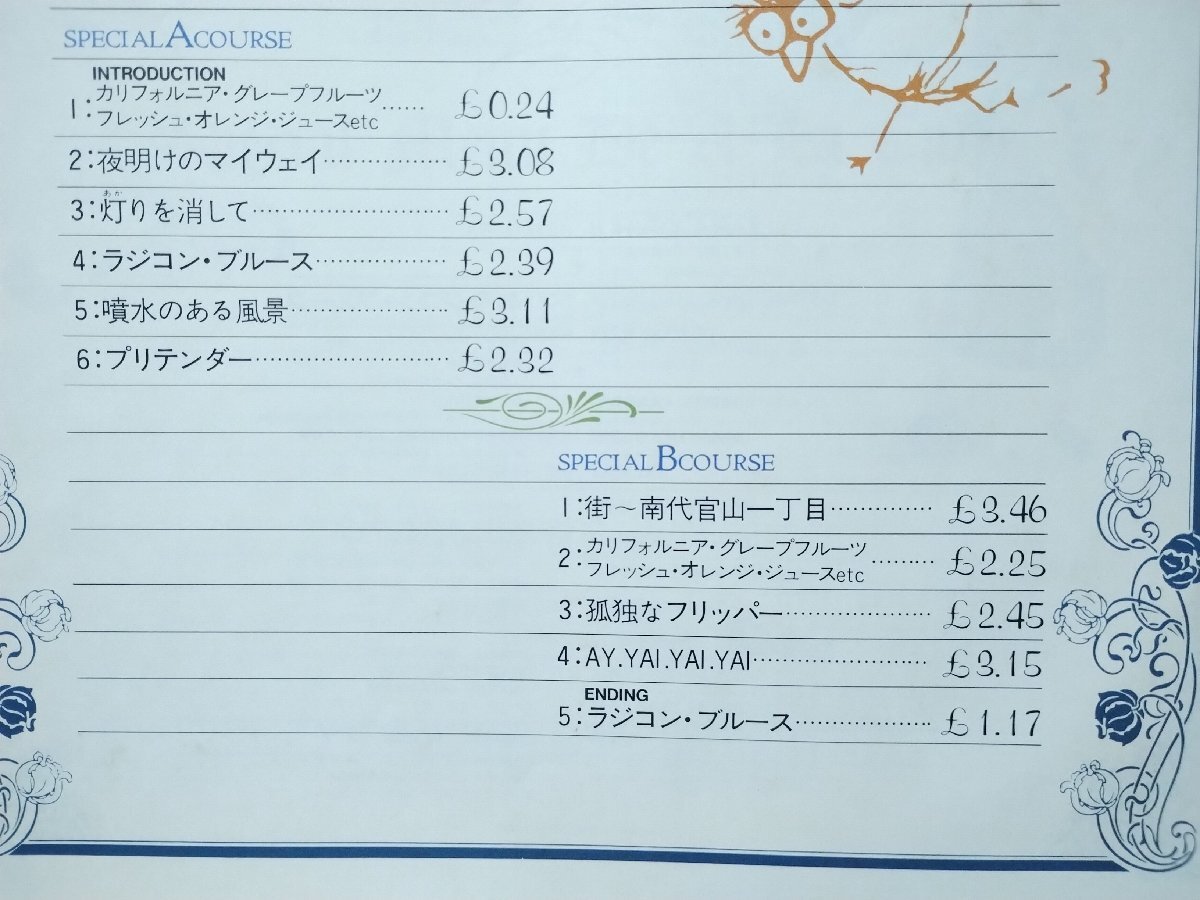 SPECIAL A COURSE
INTRODUCTION
1:カリフォルニア・グレープフルーツ
フレッシュ・オレンジ・ジュースetc……£0.24
2:夜明けのマイウェイ………………£3.08
あか
3:灯りを消して………………………£2.57
4:ラジコン・ブルース………………£2.39
5:噴水のある風景……………………£3.11
6:プリテンダー………………………£2.32
SPECIAL B COURSE
1:街～南代官山一丁目……………£3.46
2:カリフォルニア・グレープフルーツ
フレッシュ・オレンジ・ジュースetc………£2.25
3:孤独なフリッパー…………………£2.45
4:AY.YAI.YAI.YAI……………………£3.15
ENDING
5:ラジコン・ブルース………………£1.17